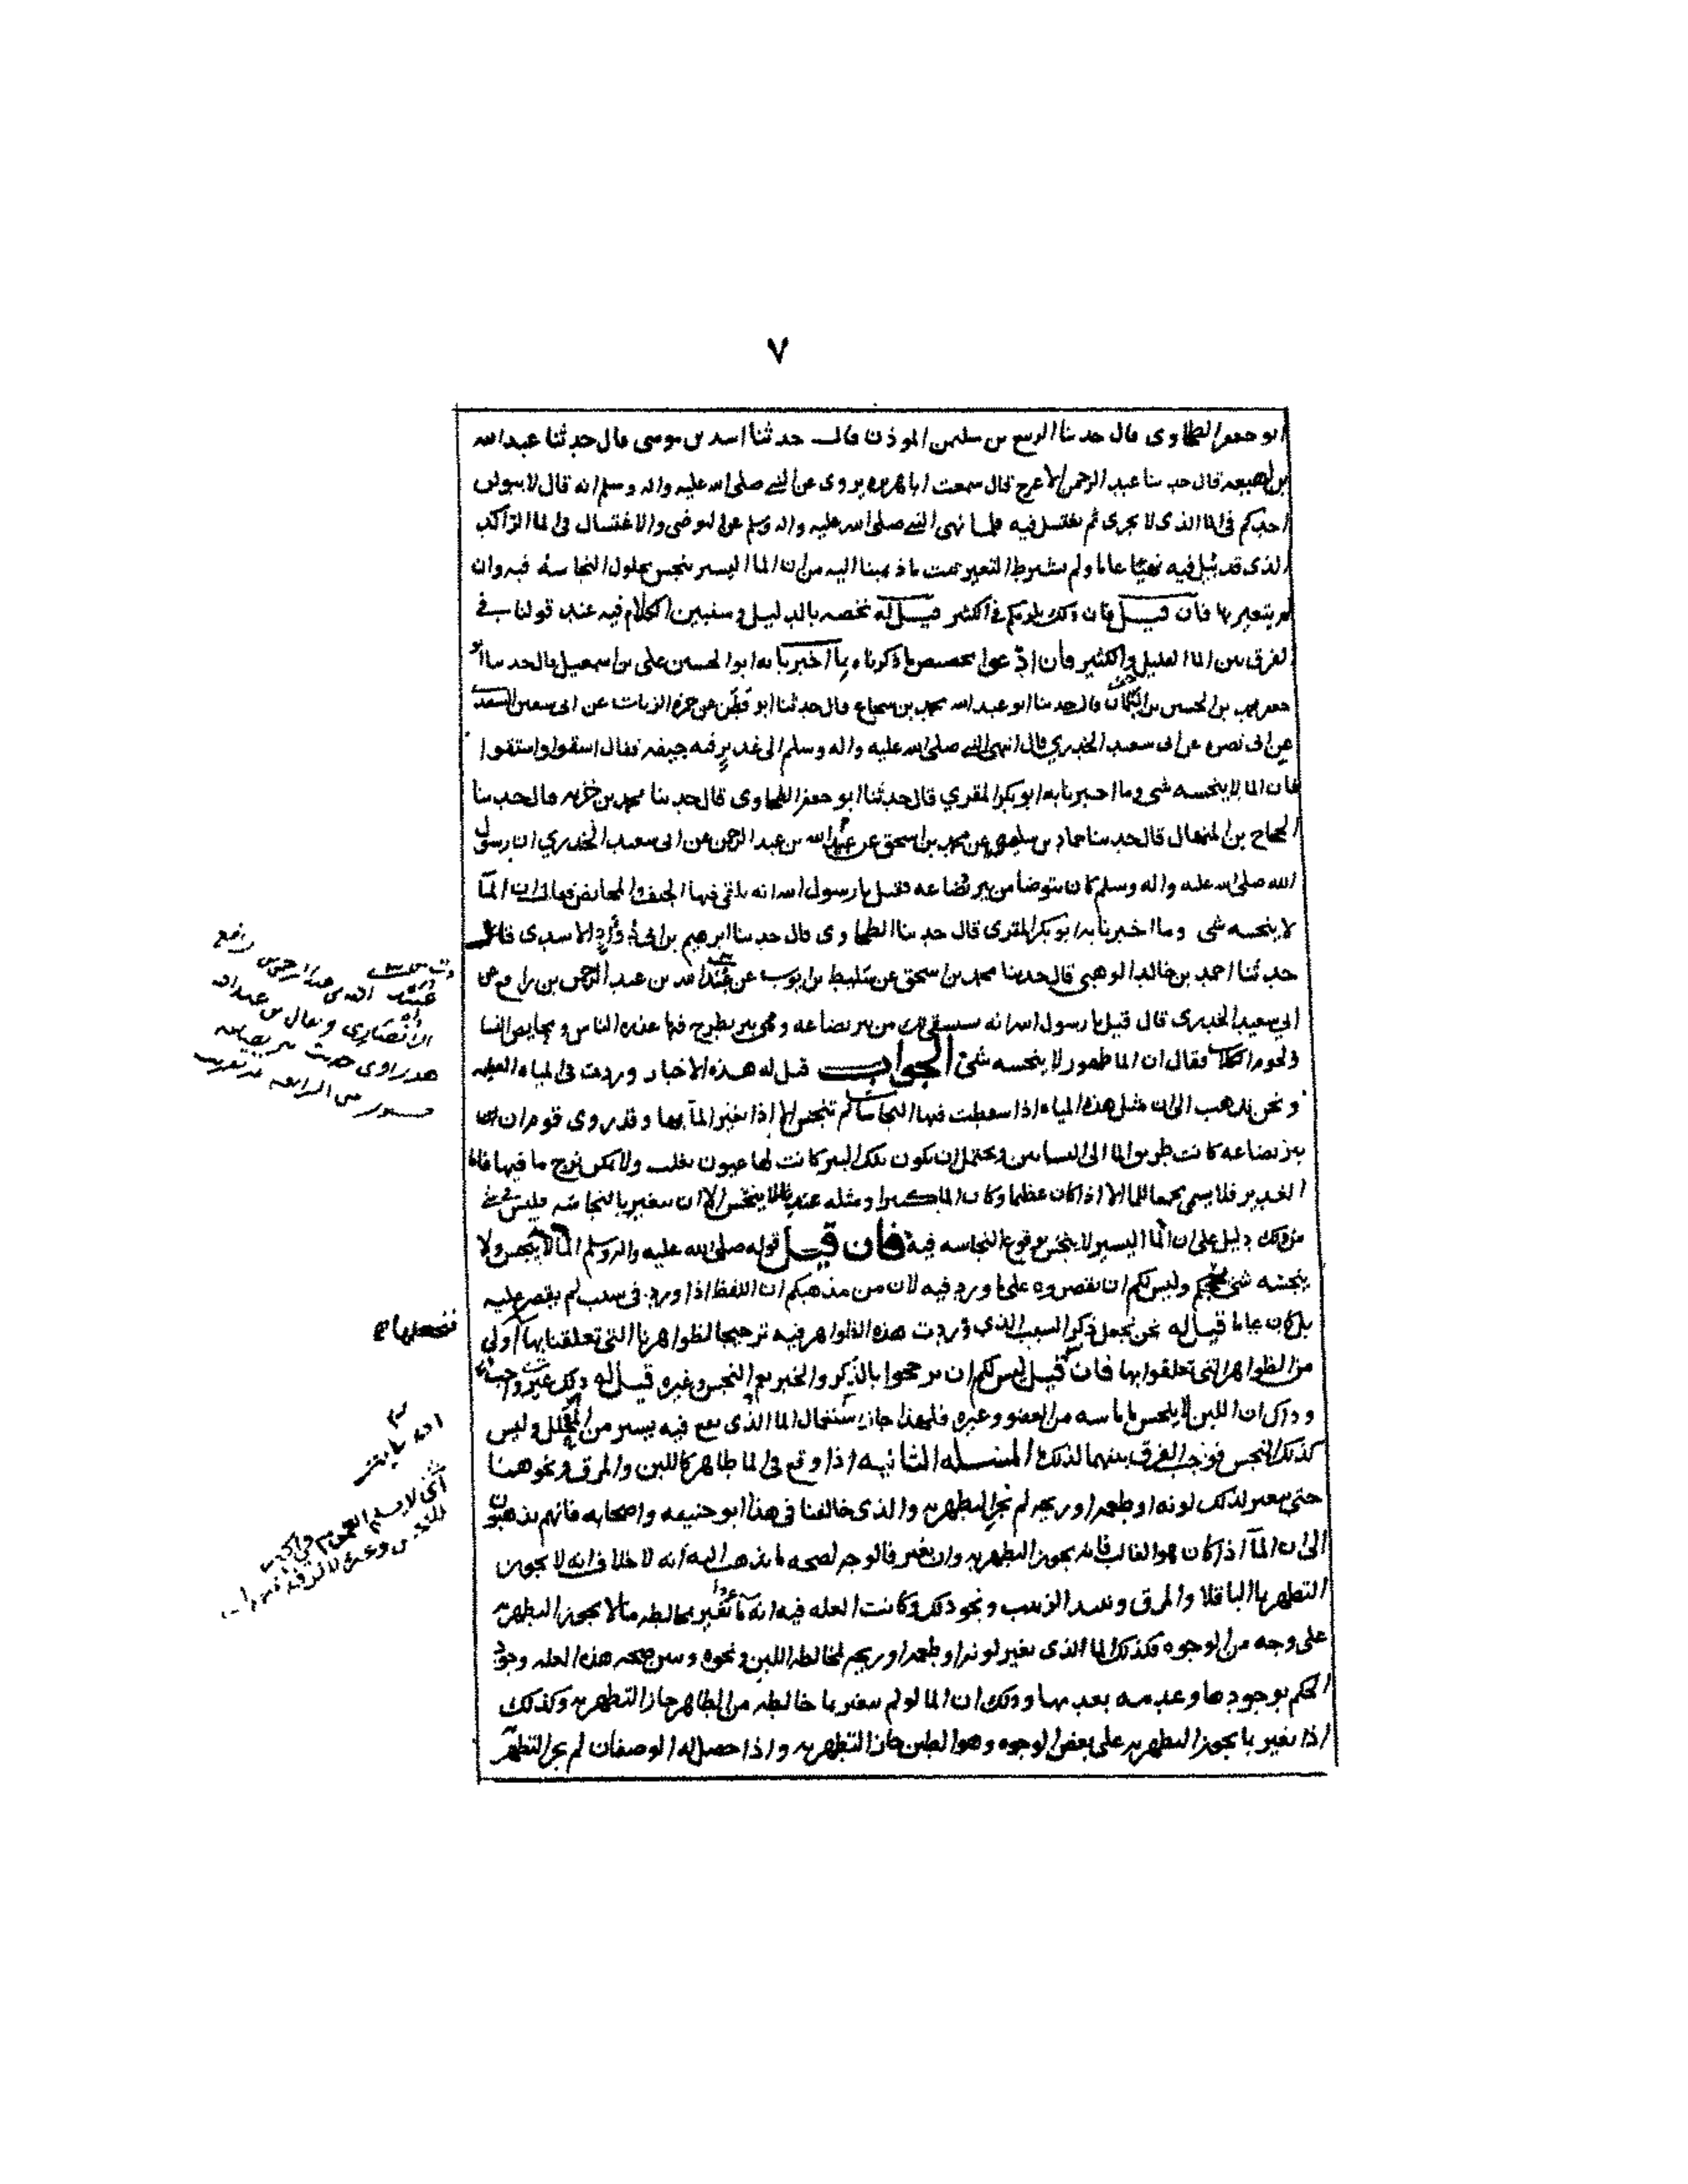 ٧
ابو جعفر الطحاوى قال حدثنا الربيع بن سليمن الموذن قال حدثنا اسد بن موسى قال حدثنا عبد الله
بن لهيعه قال حدثنا عبد الرحمن الاعرج قال سمعت ابا هريره يروى عن النبي صلى الله عليه واله وسلم انه قال لا يبولن
احدكم فى الما الذى لا يجرى ثم يغتسل فيه فلما نهى النبي صلى الله عليه واله وسلم عن التوضى والاغتسال فى الما الراكد
الذى قد بيل فيه نهيًا عاما ولم يشترط التغير ثبت ما ذهبنا اليه من ان الما اليسير ينجس بحلول النجاسة فيه وان
لم يتغير بها فان قيل فان ذلك يلزمكم فى الكثير قيل له نخصه بالدليل وسنبين الكلام فيه عند قولنا فى
الفرق بين الما القليل والكثير فان ادّعوا تخصيص ما ذكرناه بما اخبرنا به ابو الحسين على بن اسمعيل قال حدثنا ابو
جعفر محمد بن الحسين بن اليمان قال حدثنا ابو عبد الله محمد بن شجاع قال حدثنا ابو قطن عن حمزه الزيات عن ابى سفين السعدى
عن ابى نضره عن ابى سعيد الخدري قال انتهى النبي صلى الله عليه واله وسلم الى غدير فيه جيفه فقال اسقوا واستقوا
فان الما لا ينجسه شى وما اخبرنا به ابو بكر المقري قال حدثنا ابو جعفر الطحاوى قال حدثنا محمد بن خزيمه قال حدثنا
الحجاج بن المنهال قال حدثنا حماد بن سلمه عن محمد بن اسحق عن عبيد الله بن عبد الرحمن عن ابى سعيد الخدري ان رسول
الله صلى الله عليه واله وسلم كان يتوضا من بير بضاعه فقيل يا رسول الله انه يلقى فيها الجيف والمحايض فقال ان المآ
لا ينجسه شى وما اخبرنا به ابو بكر المقرى قال حدثنا الطحاوى قال حدثنا ابرهيم بن ابى داود الاسدى قال
حدثنا احمد بن خالد الوهبى قال حدثنا محمد بن اسحق عن سليط بن ايوب عن عبيد الله بن عبد الرحمن بن رافع عن
ابى سعيد الخدرى قال قيل يا رسول الله انه يستقى لك من بير بضاعه وهى بير يطرح فيها عذره الناس ومحايض النسا
ولحوم الكلاب فقال ان الما طهور لا ينجسه شئ الجواب قيل له هذه الاخبار وردت فى المياه العظيمه
ونحن نذهب الى ان مثل هذه المياه اذا سقطت فيها النجاسات لم تنجس الا اذا تغير المآ بها وقد روى قوم ان
بير بضاعه كانت طريق الما الى البساتين ويحتمل ان يكون تلك البير كانت لها عيون تغلب ولا يمكن نزح ما فيها فاما
الغدير فلا يسمى مجمعا للما الا اذا كان عظيما وكان الما كثيرا ومثله عندنا لا ينجس الا ان يتغير بالنجاسه فليس فى شي
من ذلك دليل على ان الما اليسير لا ينجس بوقوع النجاسه فيه فان قيل قوله صلى الله عليه واله وسلم الما لا ينجس ولا
ينجسه شى وليس لكم ان تقصروه على ما ورد فيه لان من مذهبكم ان اللفظ اذا ورد فى سبب لم يقصر عليه
بل كان عاما قيل له نحن نجعل ذكر السبب الذى وردت هذه الظواهر فيه ترجيحا لظواهرنا التى تعلقنا بها اولى
من الظواهر التى تعلقوا بها فان قيل ليس لكم ان ترجحوا بالذكر والخبر يعم النجس وغيره قيل له ذلك غير واجب
وذاك ان اللبن لا ينجس ما ماسه من العضو وغيره فلهذا جاز استعمال الما الذى يقع فيه يسير من وليس
كذلك النجس فوجب الفرق بينهما لذلك المسله الثانيه اذا وقع فى الما طاهر كاللبن والمرق ونحوهما
حتى يتغير لذلك لونه او طعمه او ريحه لم يجز التطهر به والذى خالفنا فى هذا ابو حنيفه واصحابه فانهم يذهبون
الى ان المآ اذا كان هو الغالب فانه يجوز التطهر به وان تغير فالوجه لصحه ما نذهب اليه انه لا خلاف انه لا يجوز
التطهر بما الباقلا والمرق ونبيذ الزبيب ونحو ذلك وكانت العله فيه انه ما تغير بمخالطه ما لا يجوز التطهر به
على وجه من الوجوه فكذلك الما الذى تغير لونه او طعمه او ريحه لمخالطه اللبن ونحوه وتبين صحه هذه العله وجود
الحكم بوجودها وعدمه بعدمها وذلك ان الما لو لم يتغير بما خالطه من الطاهر جاز التطهر به وكذلك
اذا تغير بما يجوز التطهر به على بعض الوجوه وهو الطين جاز التطهر به واذا حصل له الوصفان لم يجز التطهر
عبيد الله بن عبد الرحمن بن رافع
الانصارى ويقال بن عبد الله
هو راوى حديث بير بضاعه
مستور من الرابعه تقريب